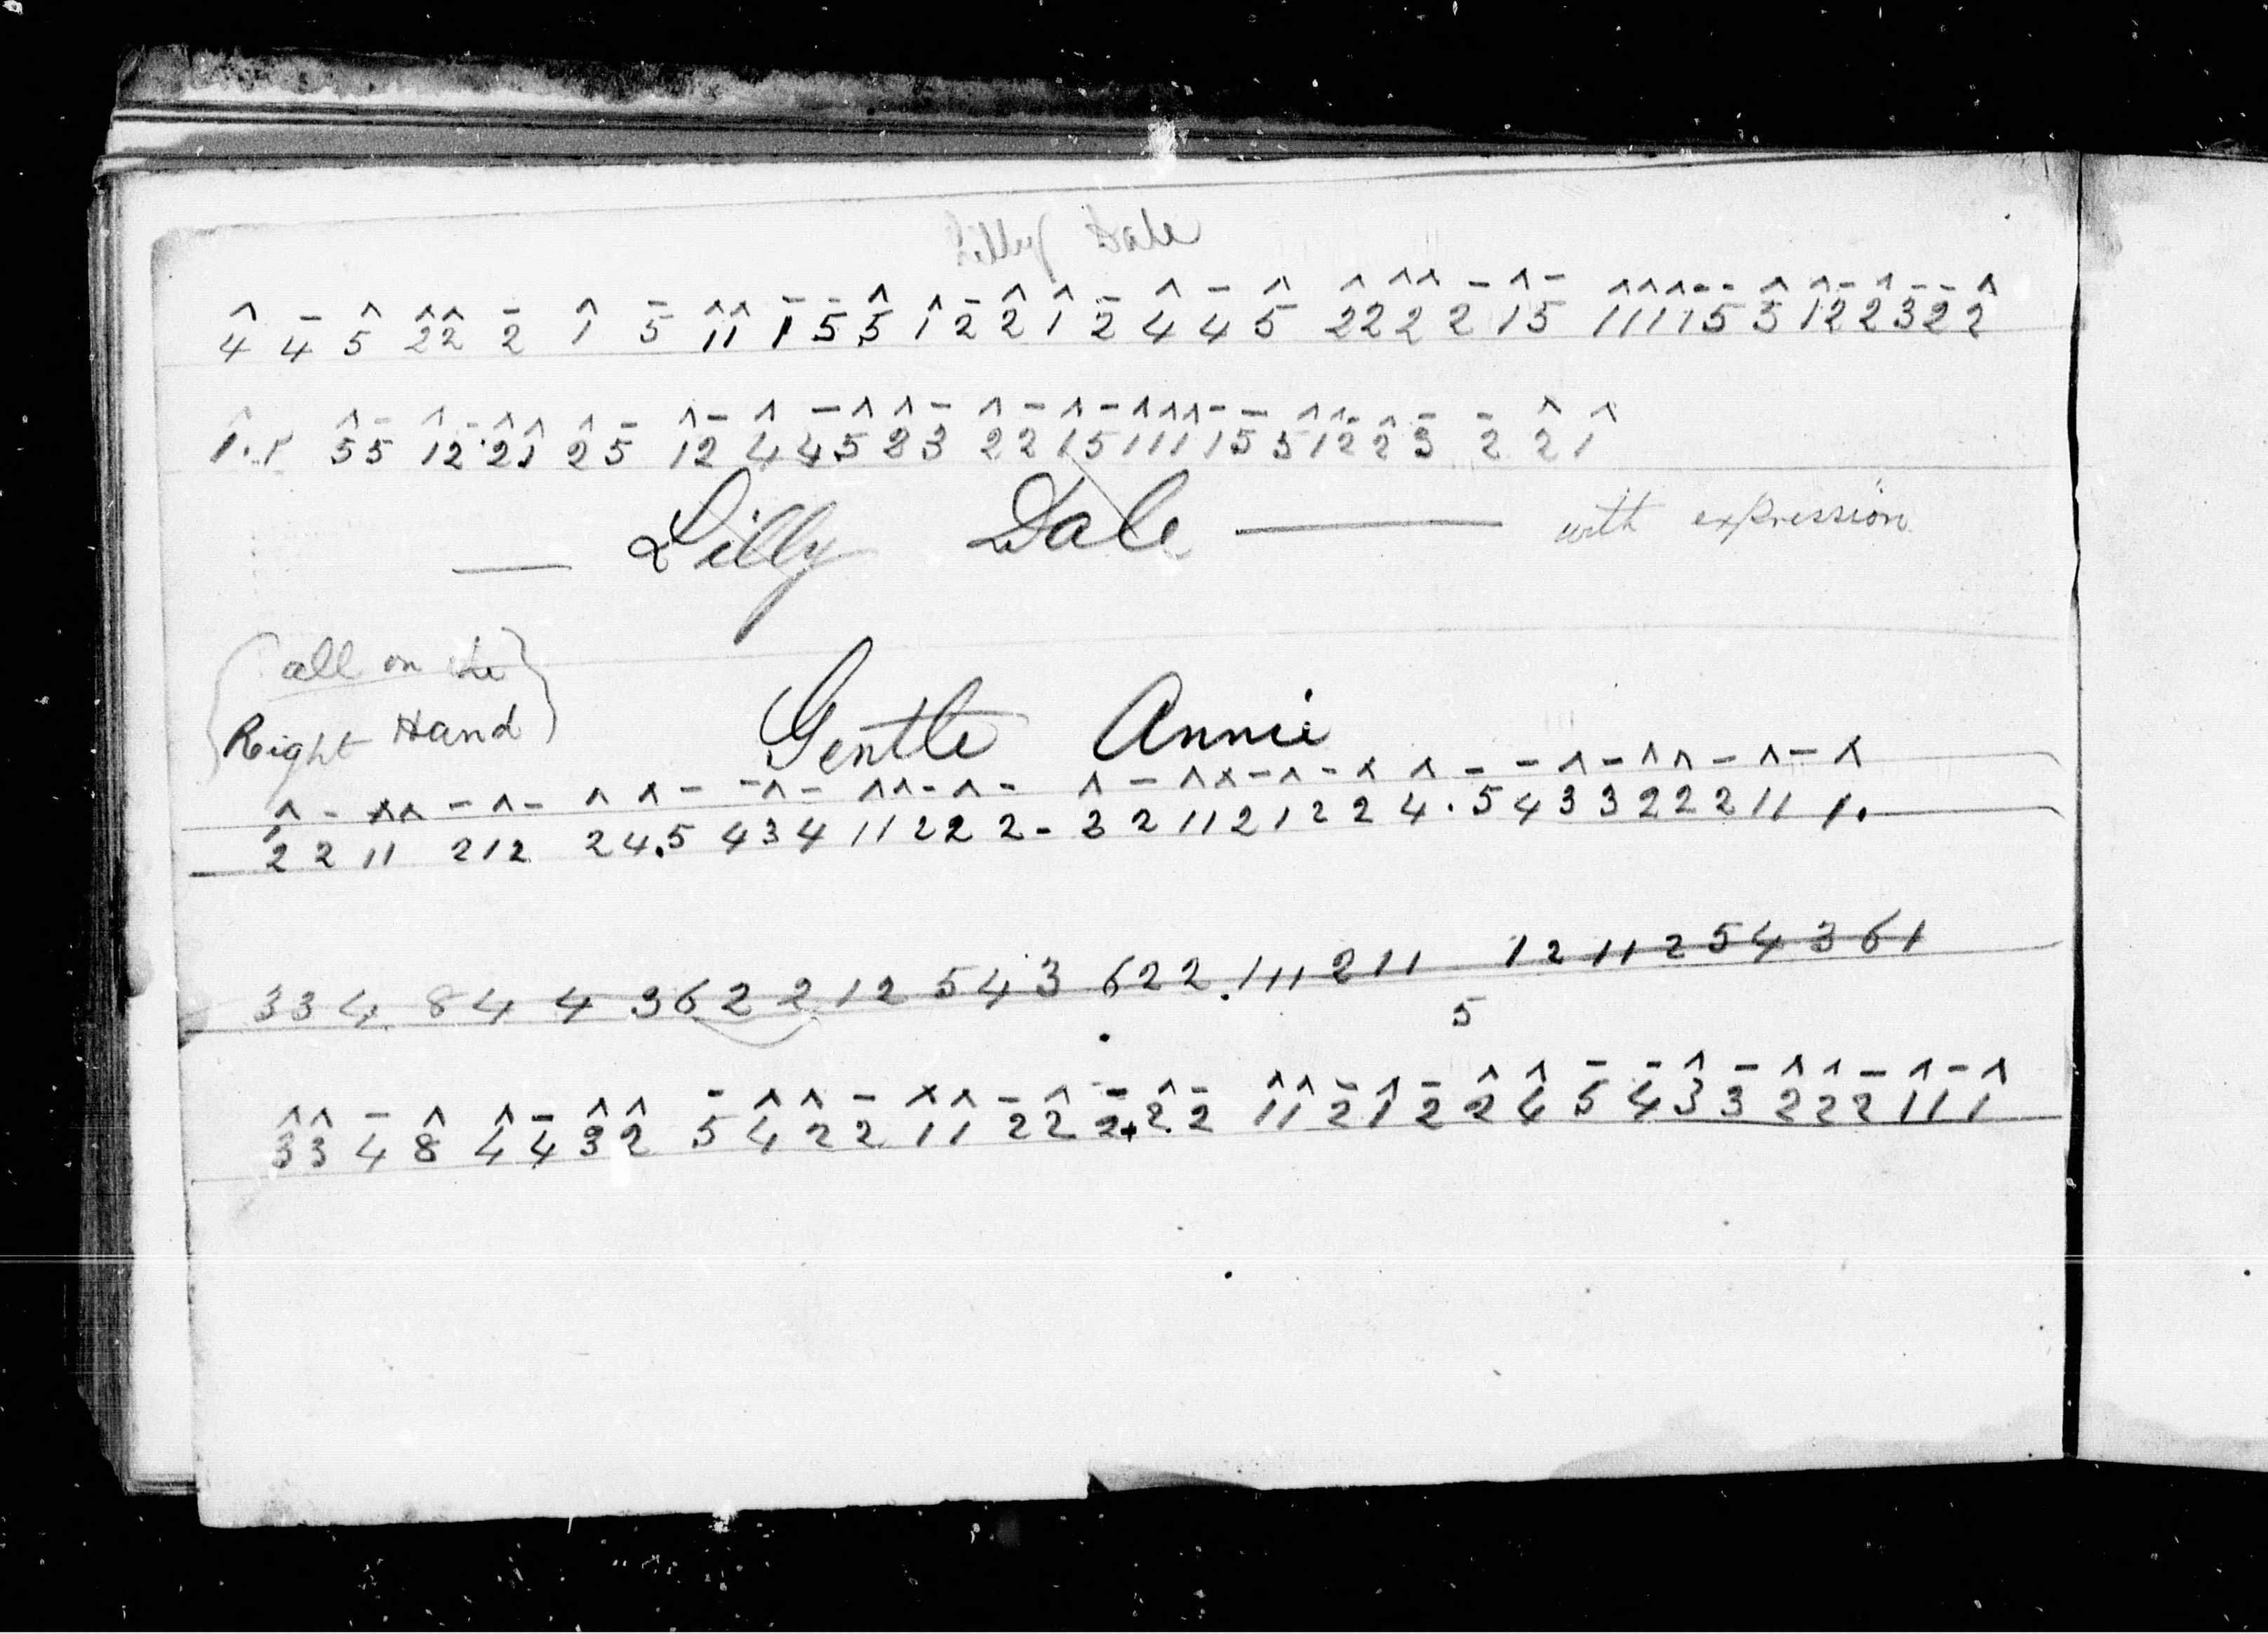 Lilly Dale
^ - ^ ^^ - ^ - ^^ - - ^ ^ - ^ ^ - ^ - ^ ^ ^^ - ^ - ^^^ - - ^ ^^ - ^ - - ^
4 4 5 22 2 1 5 11 1 5 5 1 2 2 1 2 4 4 5 22 2 2 15 111155 122322
1.1 55 12.21 25 12 44523 22151111551223 2 21
— Lilly Dale — with expression
all on the
Right Hand
Gentle Annie
^ - ^^ - ^ - ^ ^ - - ^ - ^^ - ^ - ^ - ^ ^ - ^ - ^ ^ - - ^ - ^^ - ^ - ^
2 2 11 212 24.5 434 11222 - 3211212 2 4.543322211 1.
334. 84 4 3622 12 543 622.111211 12 11 2 54 361
5
^^ - ^ ^ - ^^ - ^^ - ^^ - ^ - ^ - ^^ - ^ - ^^ - - ^ - ^^ - ^ - ^
33 4 8 4432 5422 11 222.22 11212245433222111